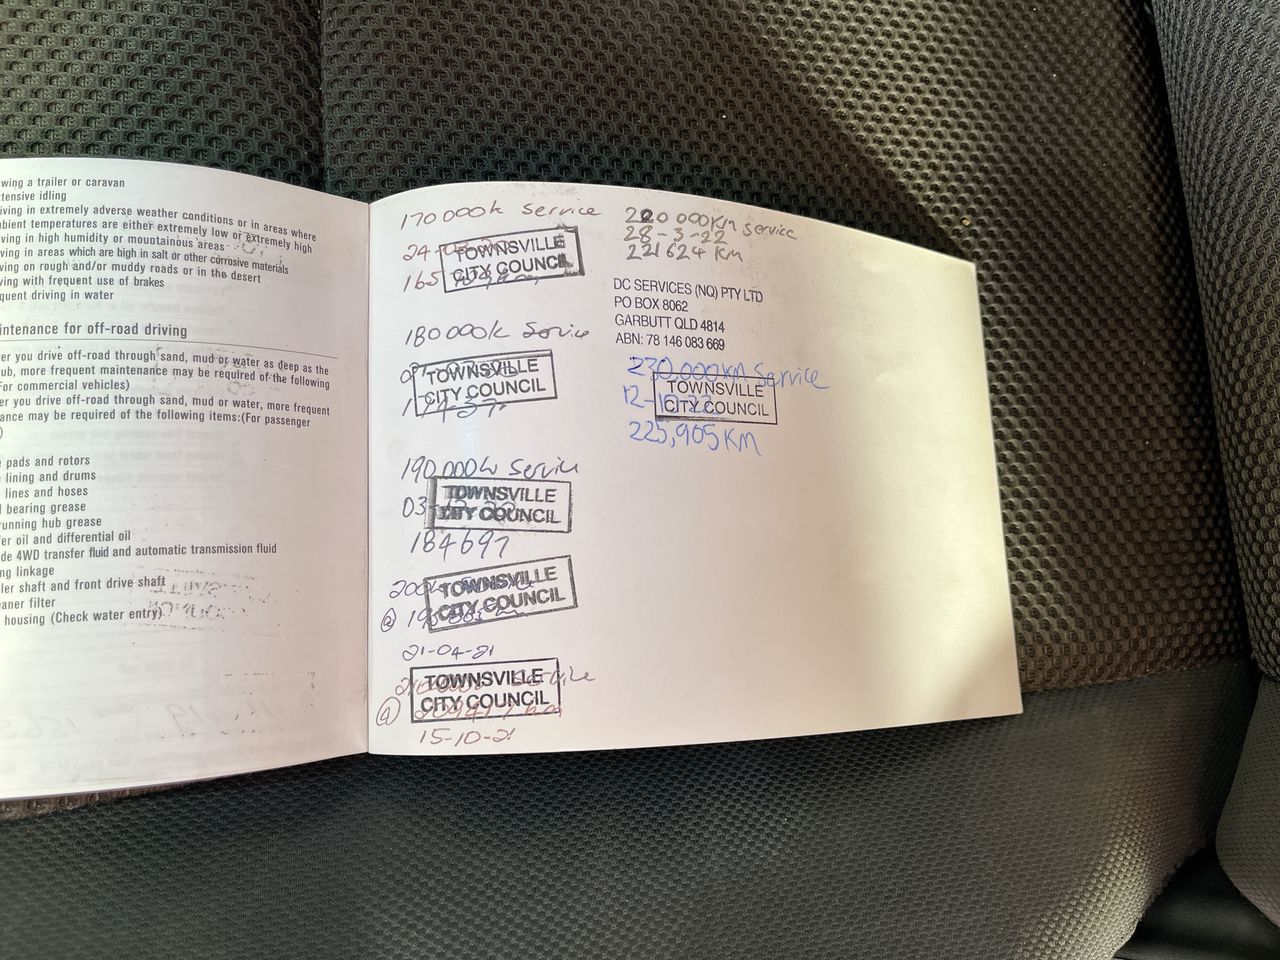 wing a trailer or caravan
tensive idling
iving in extremely adverse weather conditions or in areas where
bient temperatures are either extremely low or extremely high
iving in high humidity or mountainous areas
iving in areas which are high in salt or other corrosive materials
ving on rough and/or muddy roads or in the desert
ving with frequent use of brakes
quent driving in water
ntenance for off-road driving
er you drive off-road through sand, mud or water as deep as the
ub, more frequent maintenance may be required of the following
For commercial vehicles)
er you drive off-road through sand, mud or water, more frequent
ance may be required of the following items:(For passenger
)
pads and rotors
lining and drums
lines and hoses
bearing grease
unning hub grease
er oil and differential oil
de 4WD transfer fluid and automatic transmission fluid
ng linkage
ler shaft and front drive shaft
eaner filter
housing (Check water entry)
170 000k Service
24
TOWNSVILLE
CITY COUNCIL
165
180 000k Service
TOWNSVILLE
CITY COUNCIL
190 000k Service
03
TOWNSVILLE
CITY COUNCIL
184697
200k
TOWNSVILLE
CITY COUNCIL
@ 19
21-04-21
TOWNSVILLE
CITY COUNCIL
Service
@ km
15-10-21
220 000km service
28-3-22
221624 km
DC SERVICES (NQ) PTY LTD
PO BOX 8062
GARBUTT QLD 4814
ABN: 78 146 083 669
230,000km Service
TOWNSVILLE
CITY COUNCIL
225,905 KM